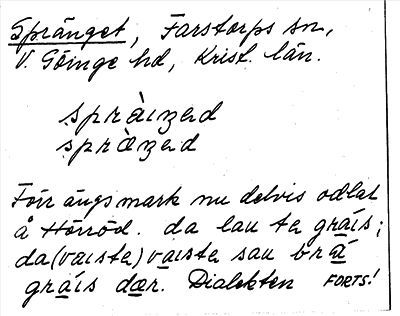 Spränget, Farstorps sn,
V. Göinge hd, Krist. län.
spràıŋəd
spràŋəd
Förr ängsmark nu delvis odlat
å Hörröd. da lau te gráis;
da (vaıstə) vaıstə sau brá
gráis dær. Dialekten FORTS!